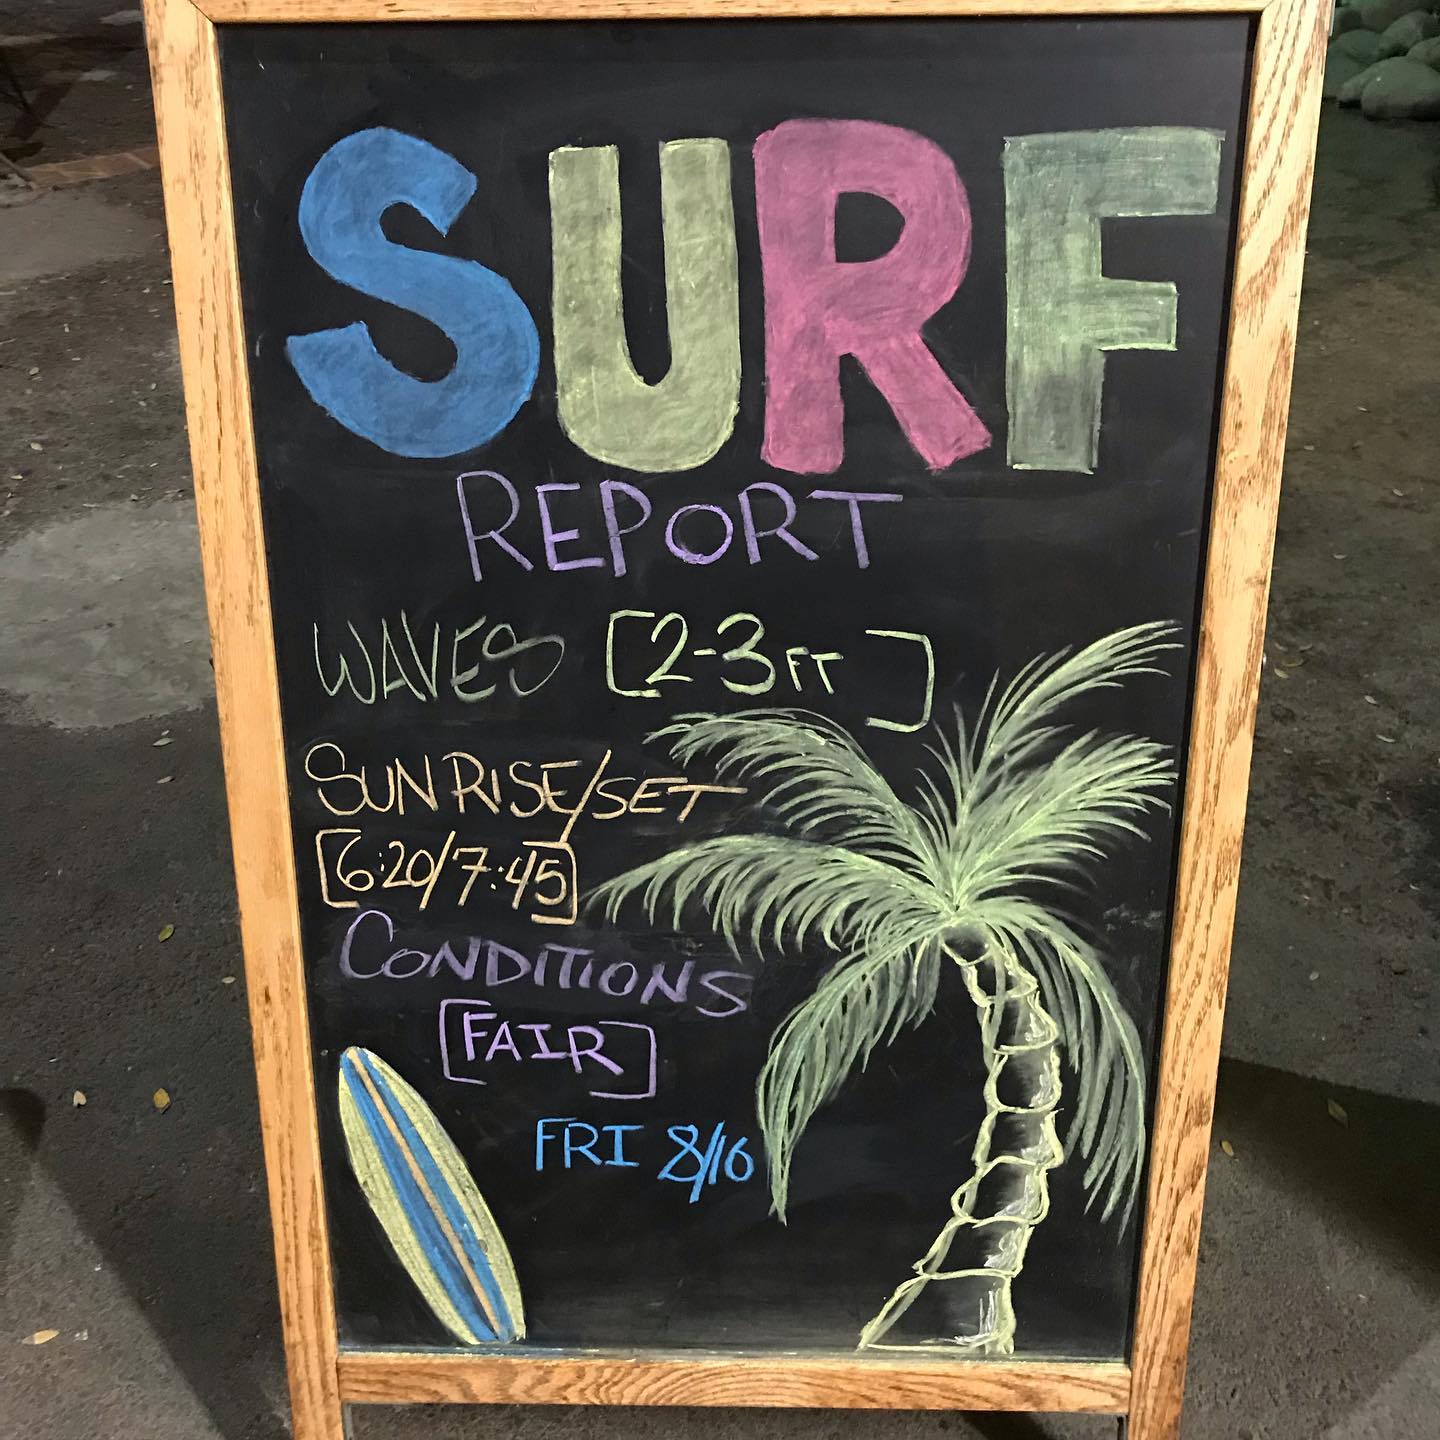 SURF
REPORT
WAVES [2-3 FT]
SUNRISE/SET
[6:20/7:45]
CONDITIONS
[FAIR]
FRI 8/16